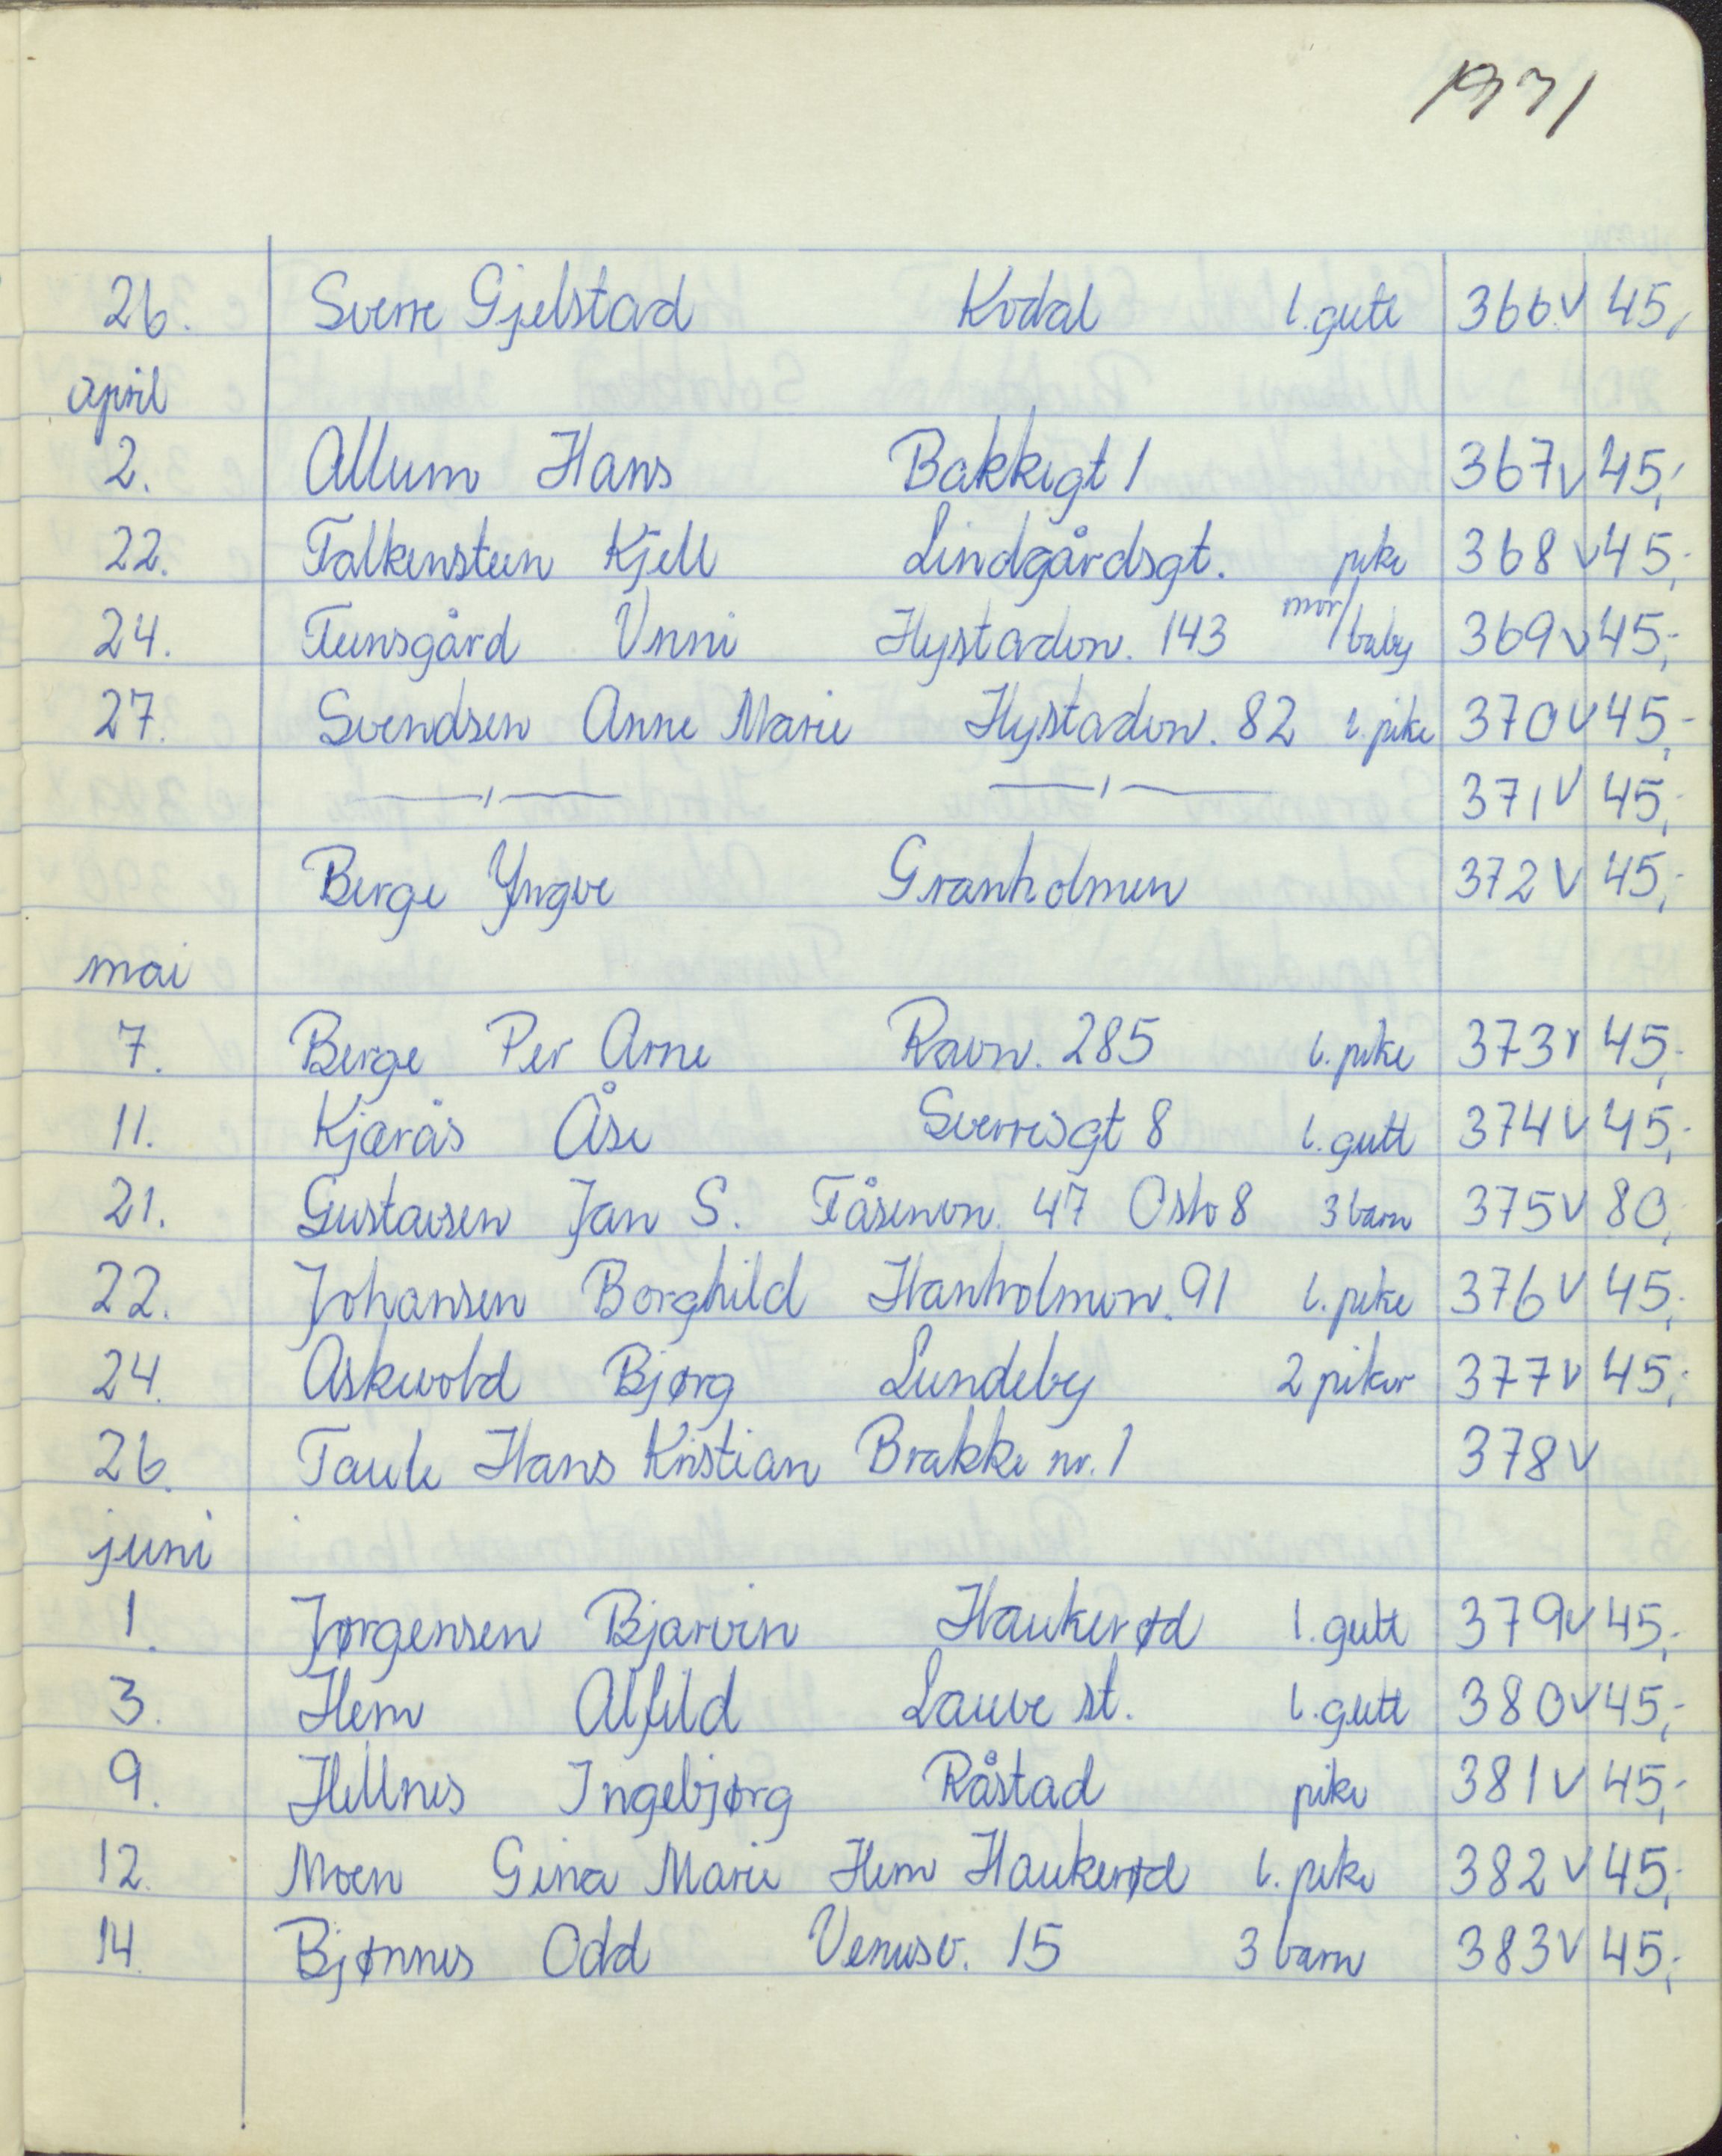 1971
26. Sverre Gjelstad Kodal l. gutt 366 v 45,
april
2. Allum Hans Bakkegt 1 367 v 45,-
22. Falkensteen Kjell Lindgårdsgt. pike 368 v 45,-
24. Teensgård Unni Hystadvn. 143 mor/baby 369 v 45,-
27. Svendsen Anne Marie Hystadvn. 82 l. pike 370 v 45,-
—,— —,— 371 v 45,-
Berge Yngve Granholmen 372 v 45,-
mai
7. Berge Per Arne Ravn. 285 l. pike 373 v 45,-
11. Kjærås Åse Sverresgt 8 l. gutt 374 v 45,-
21. Gustavsen Jan S. Tåsenvn. 47 Oslo 8 3 barn 375 v 80,-
22. Johansen Borghild Hanholmvn. 91 l. pike 376 v 45,-
24. Askevold Bjørg Lundeby 2 piker 377 v 45,-
26. Taule Hans Kristian Brakke nr. 1 378 v
juni
1. Jørgensen Bjarvin Haukerød l. gutt 379 v 45,-
3. Hem Alfild Lauve st. l. gutt 380 v 45,-
9. Hellnes Ingebjørg Råstad pike 381 v 45,-
12. Moen Gina Marie Hem Haukerød l. pike 382 v 45,-
14. Bjønnes Odd Venusv. 15 3 barn 383 v 45,-